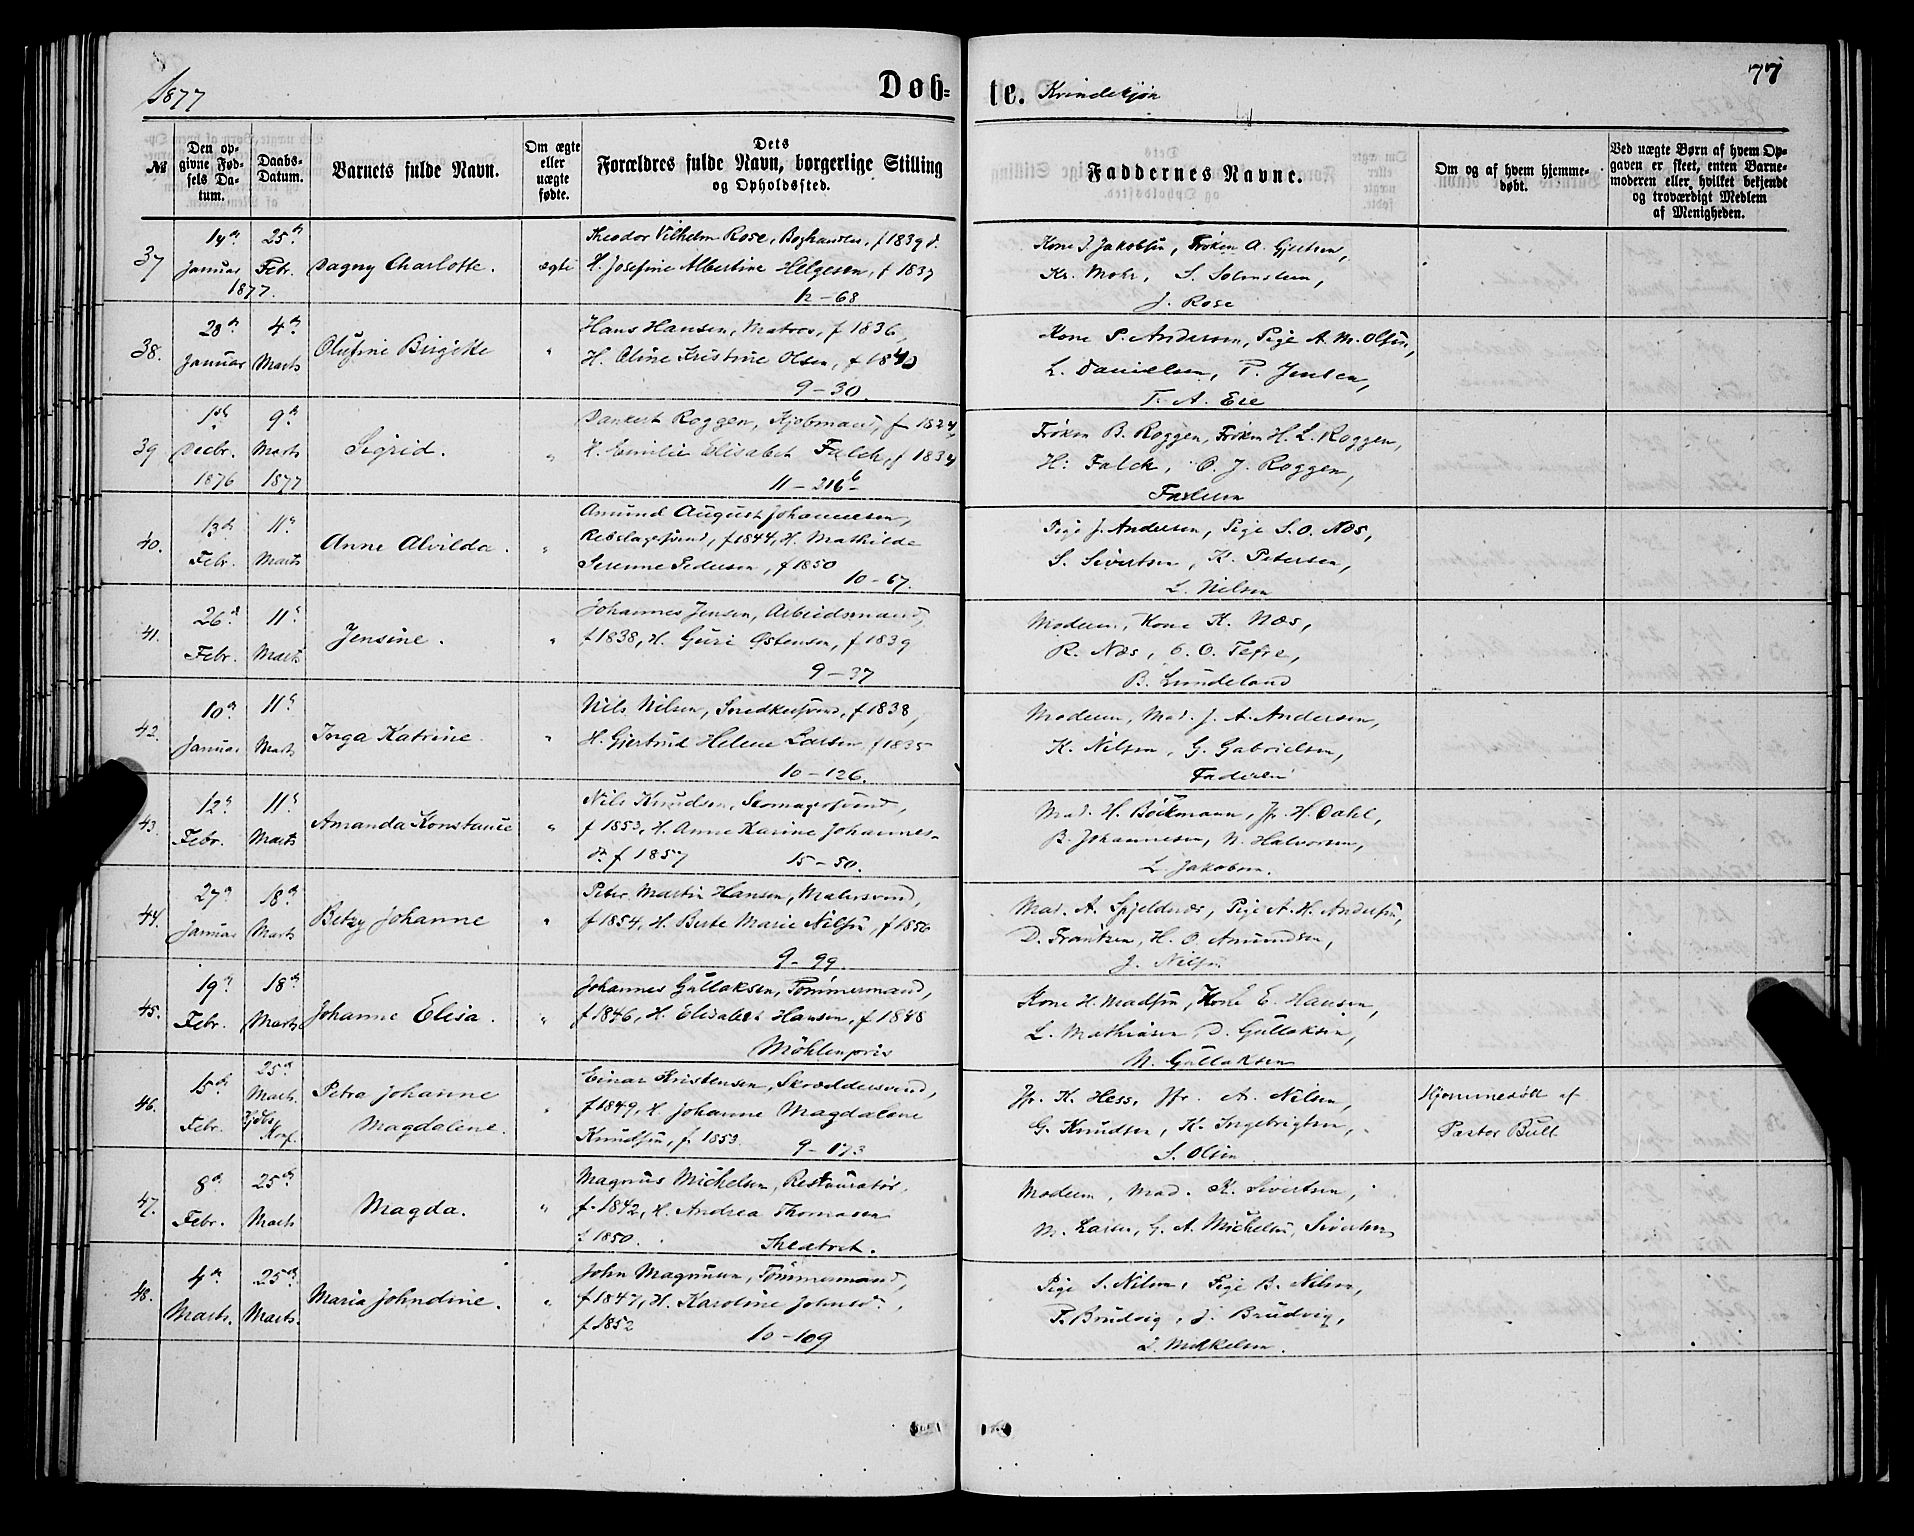 1877
Døb-
te. Kvindekjøn
77
№
Den op-
givne Fød-
sels Da-
tum.
Daabs-
Datum.
Barnets fulde Navn.
Om ægte
eller
uægte
fødte.
Dets
Forældres fulde Navn, borgerlige Stilling
og Opholdssted.
Faddernes Navne.
Om og af hvem hjemme-
døbt.
Ved uægte Børn af hvem Op-
gaven er skeet, enten Barne-
moderen eller hvilket bekjendt
og troværdigt Medlem
af Menigheden.
37
14de Januar
25de Febr.
1877.
Dagny Charlotte.
ægte
Theodor Vilhelm Rose, Boghandler, f 1839 &
H. Josefine Albertine Helgesen, f 1837
12-68
Kone J. Jakobsen, Frøken A. Gjertsen,
Kr. Mohr, S. Solmsteen,
J. Rose
38.
28de Januar
4de Marts
Olufine Birgitte
"
Hans Hansen, Matros, f 1836,
H. Oline Kristine Olsen, f 1840
9-30.
Kone P. Andersen, Pige A. M. Olsen,
L. Danielsen, P. Jensen,
T. A. Ese
39
1ste Decbr. 1876
9de Marts 1877
Sigrid.
"
Dankert Roggen, Kjøbmand, f 1824,
H. Emilie Elisabet Falck, f 1834
11-216b
Frøken B. Roggen, Frøken H. L. Roggen,
H: Falck, O. J. Roggen,
Faderen
40.
13de Febr.
11te Marts
Anne Alvilda.
"
Amund August Johannesen,
Rebslagersvend, f 1844, H. Mathilde
Serenne Pedersen, f 1850
10-67.
Pige J. Andersen, Pige S. O. Næs,
S. Sivertsen, K. Petersen,
L. Nilsen
41.
26de Febr.
11te Marts
Jensine.
"
Johannes Jensen, Arbeidsmand,
f 1838, H. Guri Østensen, f 1839
9-37
Moderen, Kone K. Næs,
R. Næs, O. O. Tefre,
B. Lundeland
42.
10de Januar
11te Marts
Inga Katrine.
"
Nils Nilsen, Snedkersvend, f 1838,
H. Gjertrud Helene Larsen, f 1835
10-126.
Moderen, Mad. J. A. Andersen,
K. Nilsen, G. Gabrielsen,
Faderen
43.
12te Febr.
11te Marts
Amanda Konstance
"
Nils Knudsen, Skomagersvend,
f 1853, H. Anne Karine Johannes-
dr. f 1857
15-50.
Mad. H. Böckmann, Jfr. H. Dahl,
B. Johannesen, N. Halvorsen,
L. Jakobsen.
44.
27de Januar
18de Marts
Betzy Johanne
"
Peter Martin Hansen, Malersvend,
f 1854, H. Berte Marie Nilsen, f 1850
9-99.
Mad. A. Spjeldnæs, Pige A. H. Andersen,
D. Frantzen, H. O. Amundsen,
J. Nilsen
45.
19de Febr.
18de Marts
Johanne Elisa.
"
Johannes Gullaksen, Tømmermand,
f 1846, H. Elisabet Hansen, f 1848
Møhlenpris
Kone H. Madsen, Kone E. Hansen,
L. Mathiasen, D. Gullaksen,
N. Gullaksen
46.
15de Febr.
25de Marts.
Hjdbs. Konf.
Petra Johanne
Magdalene.
"
Einar Kristensen, Skræddersvend,
f 1849, H. Johanne Magdalene
Knudsen, f. 1853.
9-173
Jfr. K. Hess, Jfr. A. Nilsen,
G. Knudsen, K. Ingebrigtsen,
S. Olsen
Hjemmedøbt af
Pastor Bull
47.
8de Febr.
25de Marts
Magda.
"
Magnus Michelsen, Restauratør,
f. 1842, H. Andrea Thomasen
f 1850.
Theatret.
Moderen, Mad. K. Sivertsen,
M. Larsen, G. A. Michelsen, Sivertsen
48.
4de Marts.
25de Marts.
Maria Johndine.
"
John Magnusen, Tømmermand,
f 1847, H. Karoline Johnsdr.,
f 1852
10-109
Pige S. Nilsen, Pige B. Nilsen,
P. Brudvig, J. Brudvig,
L. Mikkelsen.